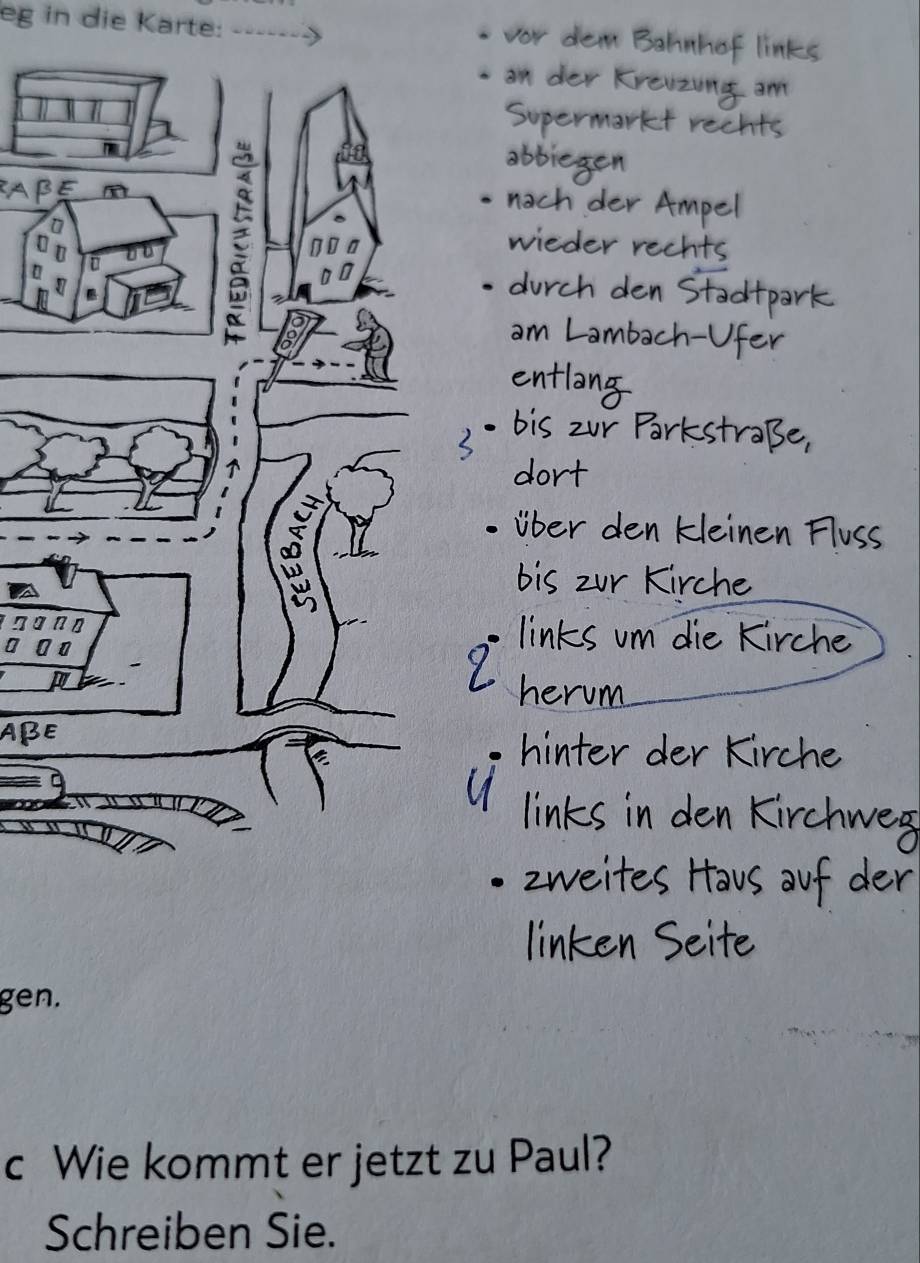 eg in die Karte:
• vor dem Bahnhof links
• an der Kreuzung am
Supermarkt rechts
abbiegen
• nach der Ampel
wieder rechts
• durch den Stadtpark
am Lambach-Ufer
entlang
3 • bis zur Parkstraße,
dort
• über den kleinen Fluss
bis zur Kirche
2 • links um die Kirche
herum
4 • hinter der Kirche
links in den Kirchweg
• zweites Haus auf der
linken Seite
RAßE
FRIEDRICHSTRAßE
SEEBACH
AßE
gen.
c Wie kommt er jetzt zu Paul?
Schreiben Sie.